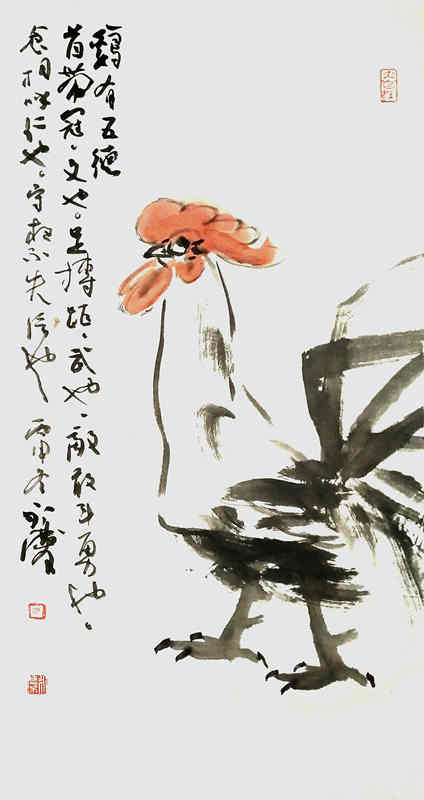 鷄有五德
首带冠、文也。足搏距、武也、敵敢斗勇也、
食相呼仁也。守夜不失信也 丙申冬